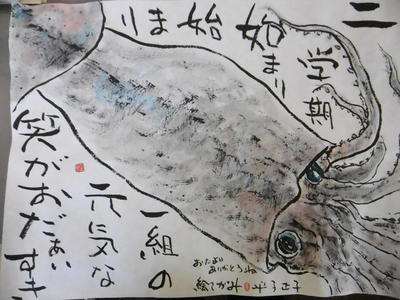 二
学期
始まり
始まり
一組の
元気な
笑がおだぁいすき
おたより
ありがとうね
絵てがみ